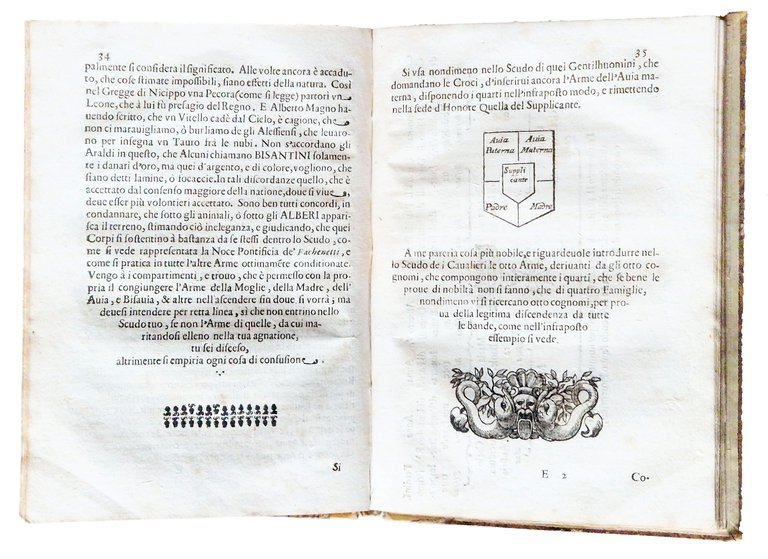 34
palmente si considera il significato. Alle volte ancora è accadu-
to, che cose stimate impossibili, siano effetti della natura. Così
nel Gregge di Nicippo vna Pecora (come si legge) partorì vn
Leone, che à lui fù presagio del Regno. E Alberto Magno ha-
uendo scritto, che vn Vitello cadè dal Cielo, è cagione, che
non ci marauigliamo, ò burliamo de gli Alessensi, che leuaro-
no per insegna vn Tauro frà le nubi. Non s'accordano gli
Araldi in questo, che Alcuni chiamano BISANTINI solamen-
te i danari d'oro, ma quei d'argento, e di colore, vogliono, che
siano detti lamine, ò focaccie. In tali discordanze quello, che è
accettato dal consenso maggiore della natione, doue si viue,
deue esser più volontieri accettato. Sono ben tutti concordi, in
condannare, che sotto gli animali, ò sotto gli ALBERI appari-
sca il terreno, stimando ciò ineleganza, e giudicando, che quei
Corpi si sostentino à bastanza da se stessi dentro lo Scudo, co-
me si vede rappresentata la Noce Pontificia de' Fachenetti, e
come si pratica in tutte l'altre Arme ottimamēte conditionate.
Vengo à i compartimenti, e trouo, che è permesso con la pro-
pria il congiungere l'Arme della Moglie, della Madre, dell'
Auia, e Bisauia, & altre nell'ascendere sin doue si vorrà; ma
deuesi intendere per retta linea, sì che non entrino nello
Scudo tuo, se non l'Arme di quelle, da cui ma-
ritandosi elleno nella tua agnatione,
tu sei disceso,
altrimente si empiria ogni cosa di confusione.
Si
35
Si vsa nondimeno nello Scudo di quei Gentilhuomini, che
domandano le Croci, d'inserirui ancora l'Arme dell'Auia ma-
terna, disponendo i quarti nell'infraposto modo, e rimettendo
nella sede d'Honore Quella del Supplicante.
Auia Paterna
Auia Materna
Suppli cante
Padre
Madre
A me pareria cosa più nobile, e riguardeuole introdurre nel-
lo Scudo de i Caualieri le otto Arme, deriuanti da gli otto co-
gnomi, che compongono interamente i quarti, che se bene le
proue di nobiltà non si fanno, che di quattro Famiglie,
nondimeno vi si ricercano otto cognomi, per pro-
ua della legitima discendenza da tutte
le bande, come nell'infraposto
essempio si vede.
E 2
Co-